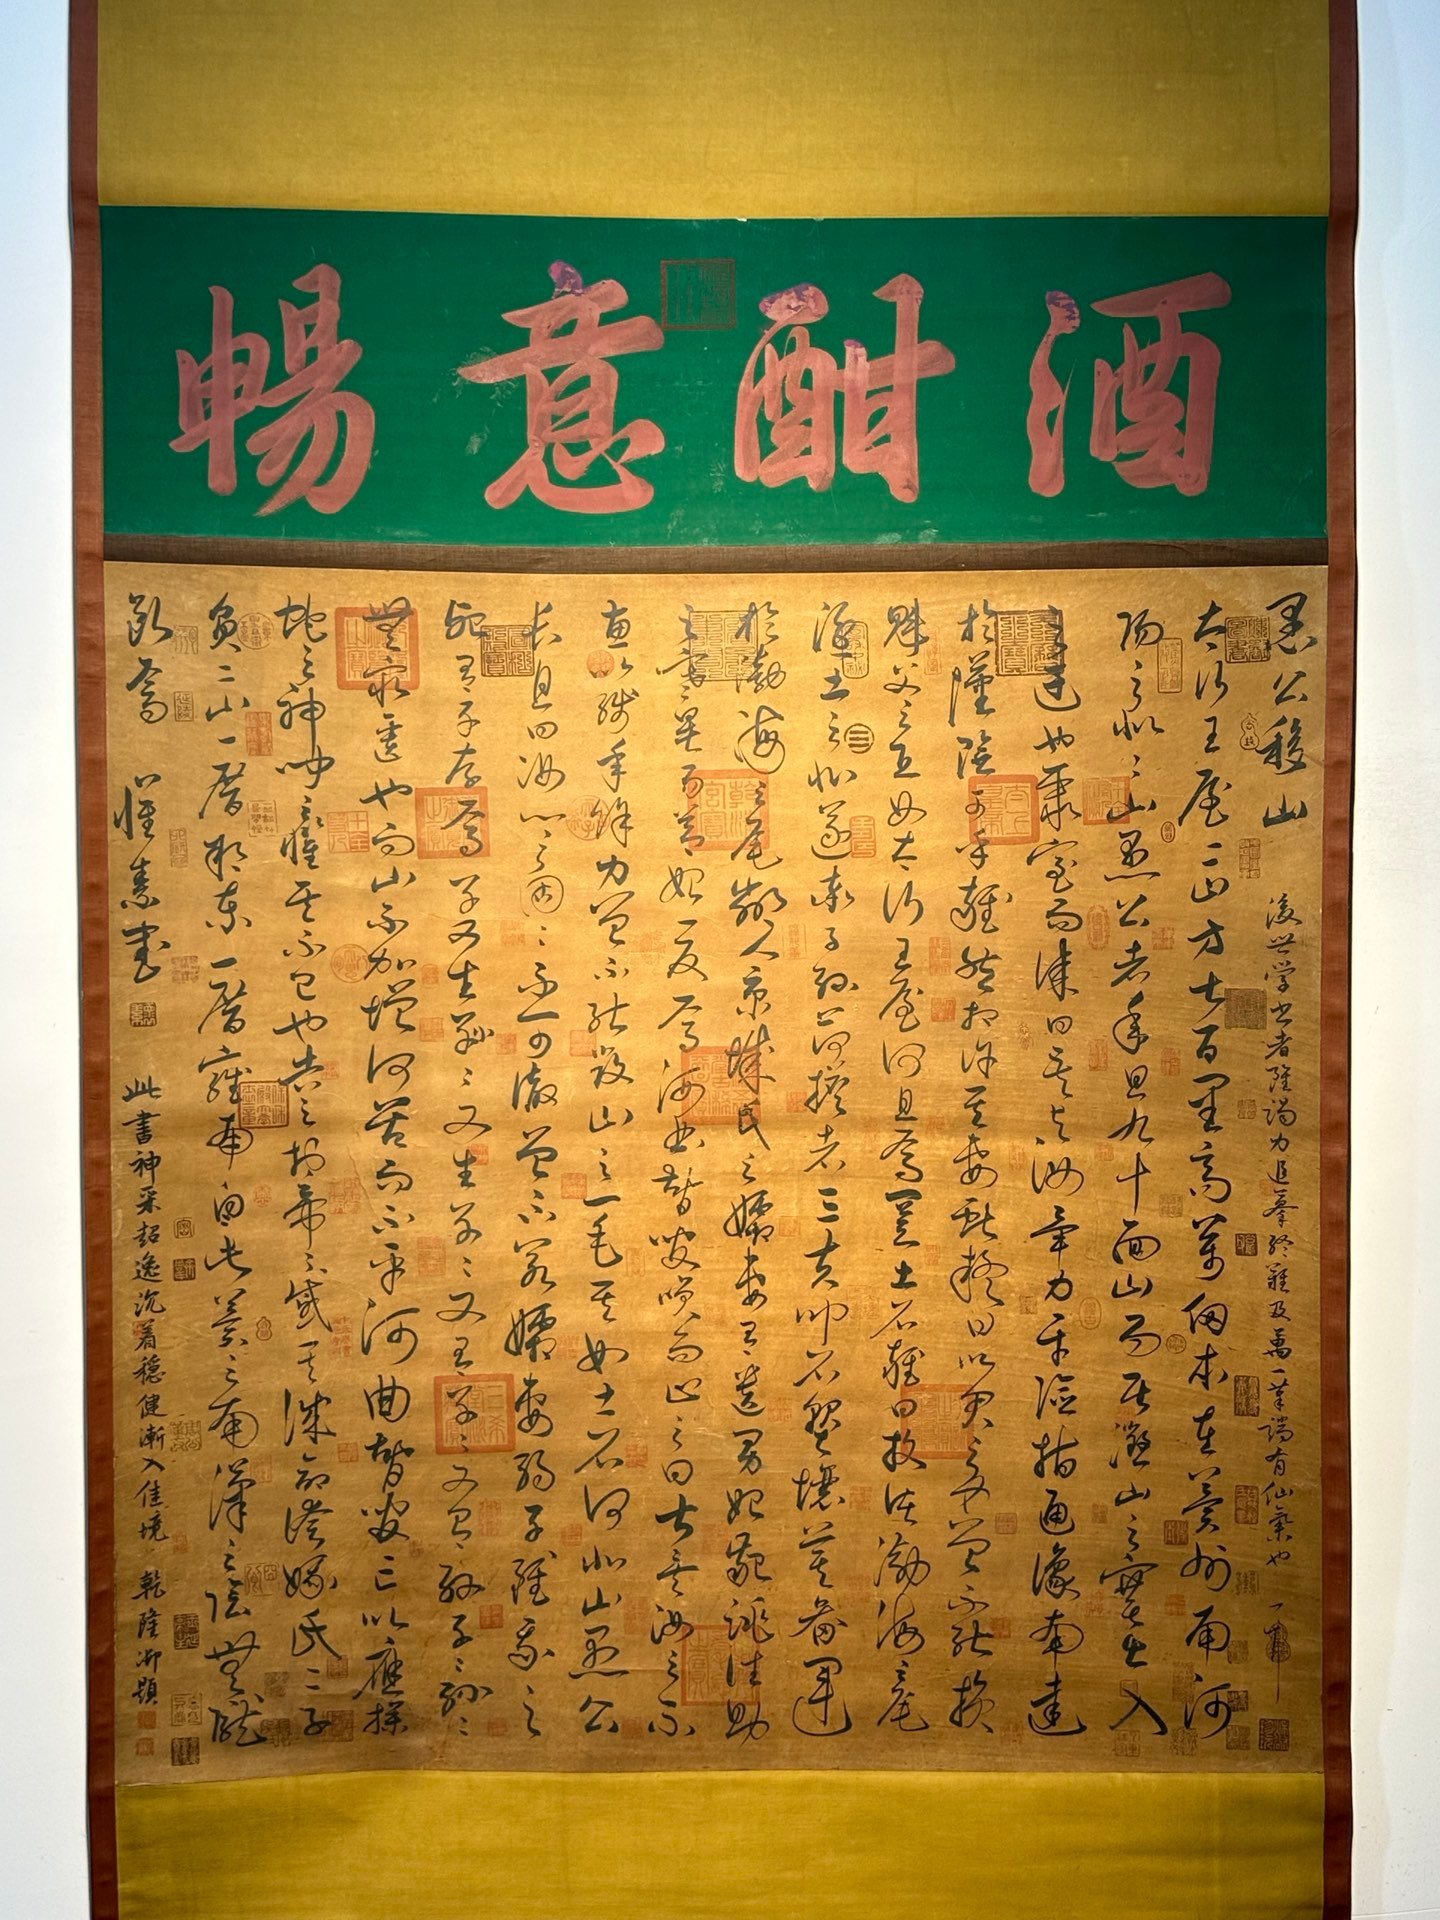 酒酣意暢
愚公移山
後世学书者雖竭力追摹終難及萬一筆端有仙氣也
太行王屋二山方七百里高萬仞本在冀州南河
陽之北〻山愚公者年且九十面山而居懲山之塞出入
之迂也聚室而謀曰吾与汝畢力平險指通豫南達
於漢陰可乎雜然相许其妻獻疑曰以君之力曾不能損
魁父之丘如太行王屋何且焉置土石雜曰投諸渤海之尾
隱土之北遂率子孫荷擔者三夫叩石墾壤箕畚運
於渤海之尾鄰人京城氏之孀妻有遺男始齔跳往助
之寒暑易節始一反焉河曲智叟笑而止之曰甚矣汝之不
惠以殘年餘力曾不能毀山之一毛其如土石何北山愚公
長息曰汝心之固〻不可徹曾不若孀妻弱子雖我之
死有子存焉子又生孫〻又生子〻又有子〻又有孫子〻孫〻
無窮匱也而山不加增何苦而不平河曲智叟亡以應操
蛇之神聞之懼其不已也告之於帝〻感其誠命夸娥氏二子
負二山一厝朔東一厝雍南自此冀之南漢之陰無隴
斷焉 懷素書
此書神采超逸沉着穩健漸入佳境 乾隆御題